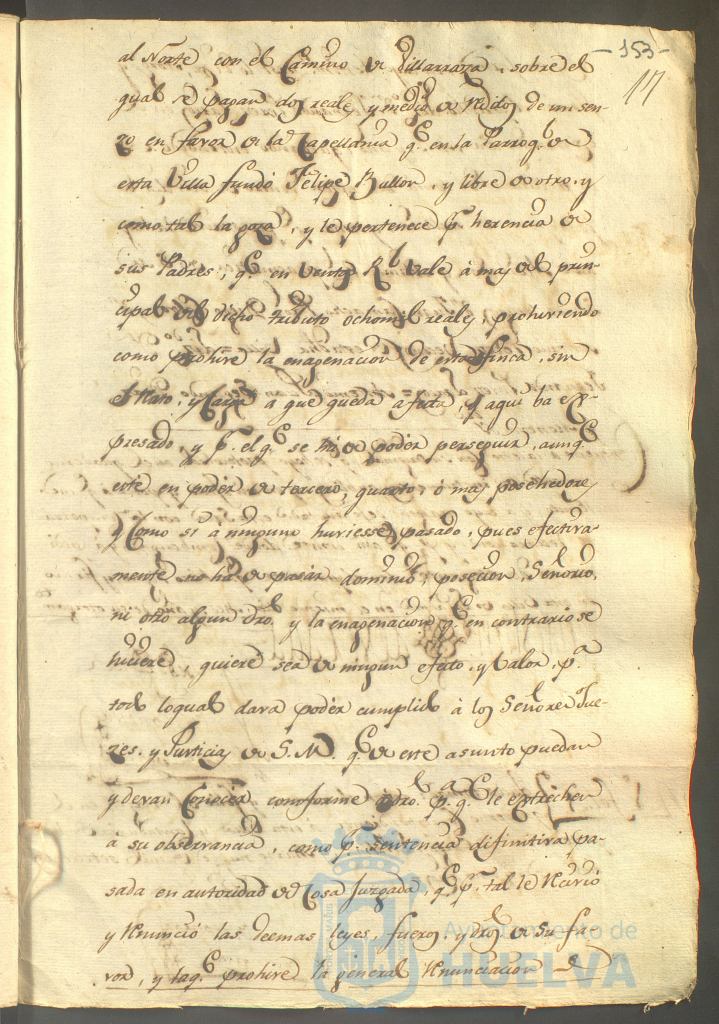 -153-
117
al Norte con el Camino de Villarraza, sobre el
qual se pagan dos reales y medio de reditos de un sen-
zo en favor de la Capellania q.e en la Parroq.l de
esta Villa fundó Felipe Bullon, y libre de otro, y
como tal la goza, y le pertenece p.r herencia de
sus Padres, q.e en venta R.l vale à mas del prin-
cipal del dicho tributo ochomil reales, prohiviendo
como prohive la enagenacion de esta finca, sin
el Plazo, y Carga a que queda afecta, y aqui ba ex-
presado, y p.r el q.e se há de poder perseguir, aunq.e
esté en poder de tercero, quarto, ó mas posehedores
y como si à ninguno huviesse pasado, pues efectiva-
mente no ha de pasar dominio, posecion, Señorio,
ni otro algun dro. y la enagenacion q.e en contrario se
hiciere, quiere sea de ningun efecto, y valor, p.a
todo loqual dava poder cumplido à los Señores Jue-
zes, y Justicias de S. M. q.e de este asunto puedan
y devan Conocer conforme à dro. p.a q.e le estrechen
à su observancia, como p.r sentencia difinitiva pa-
sada en autoridad de Cosa Juzgada, q.e p.r tal le recivió
y renunció las demas leyes, fueros, y dros. de su fa-
vor, y la q.e prohive la general renunciacion
Ayuntamiento de
HUELVA